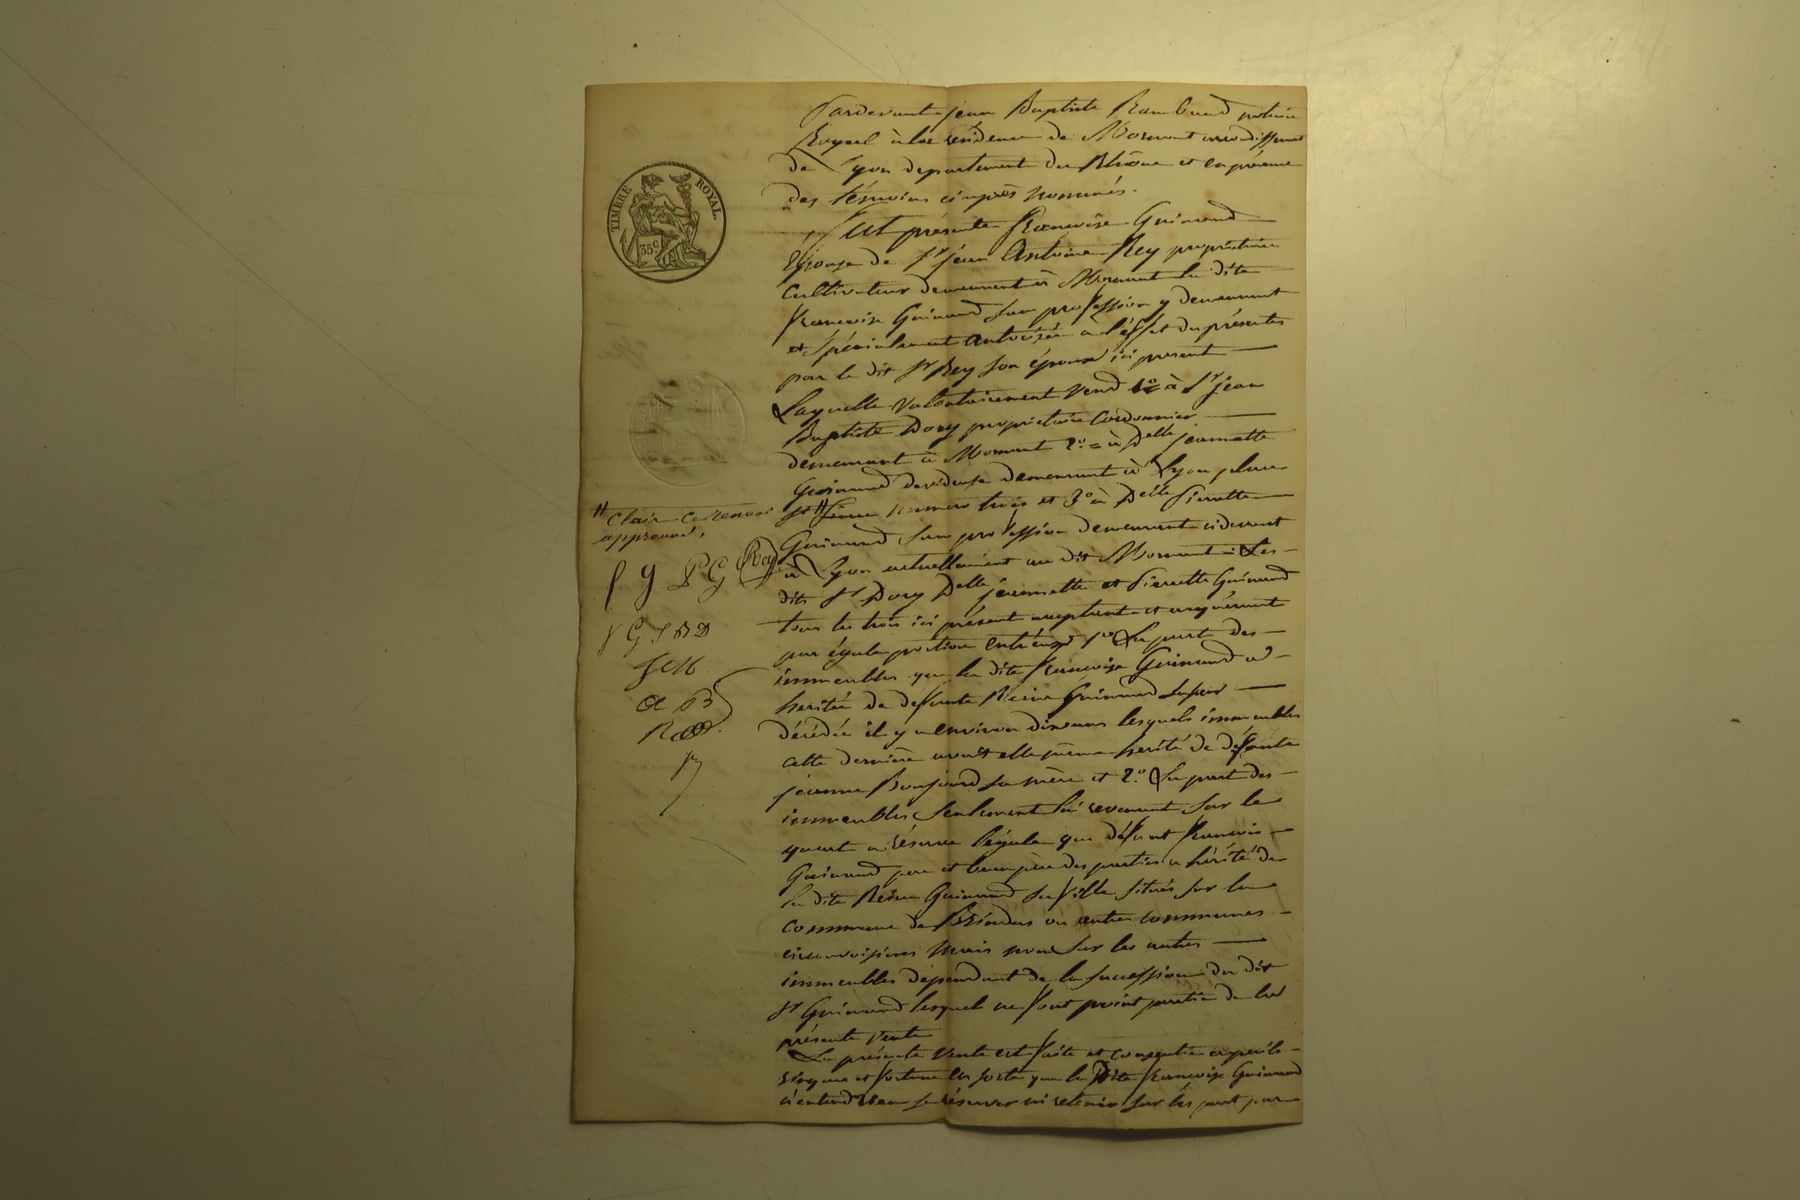 Pardevant jean Baptiste Rambaud notaire
Royal à la résidence de Mornant arrondissement
de Lyon departement du Rhône et en présence
des témoins ci après nommés.
TIMBRE ROYAL
35c
Fut présente Francoise Guinand
Epouse de Sr jean Antoine Rey propriétaire
Cultivateur demeurant à Mornant la dite
francoise Guinand sans profession y demeurant
et spécialement autorisée à l'éffet des présentes
par le dit Sr Rey son époux ici present
Laquelle volontairement vend 1o à Sr jean
Baptiste Dory propriétaire Cordonnier
demeurant à Mornant 2o = à Delle jeannette
Guinand devideuse demeurant à Lyon place
# Clair ce renvoi
approuvé.
St # numero trois et 3o à Delle Pierrette
Guinand sans profession demeurant cidevant
à Lyon actuellement au dit Mornant Les
dits Sr Dory Delle jeannette et Pierrette Guinand
tous les trois ici présent acceptant et acquérant
par égale portion entr'eux 1o La part des
immeubles que la dite francoise Guinand a
heritée de defunte Reine Guinand sa sœur
f g P G Rey
J G J B D
décédée il y a environ dix ans lesquels immeubles
cette dernière avoit elle même herité de défunte
jeanne Bonjour sa mère et 2o La part des
immeubles seulement lui revenant sur le
quart en réserve légale que défunt francois
Guinand pere et beau père des parties a hérité de
la dite Reine Guinand sa fille situés sur la
commune de Brindas ou autres communes
circonvoisines mais non sur les autres
immeubles dépendant de la succession du dit
Sr Guinand lesquel ne font point partie de la
présente vente
La présente vente est faite et consentie a périls
risques et fortune en sorte que la dite francoise Guinand
n'entend rien se réserver ni retenir sur les part par